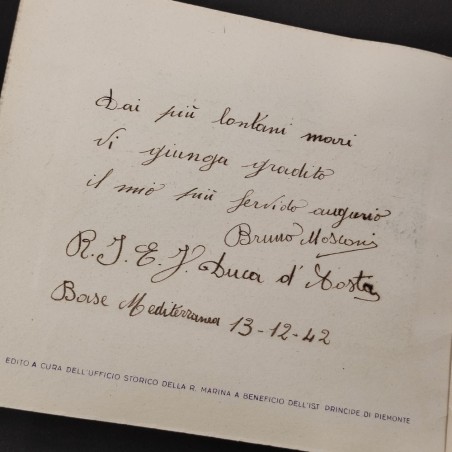 Dai più lontani mari
Vi giunga gradito
il mio più fervido augurio
Bruno Mosconi
R. I. E. F. Duca d'Aosta
Base Mediterranea 13-12-42
EDITO A CURA DELL'UFFICIO STORICO DELLA R. MARINA A BENEFICIO DELL'IST. PRINCIPE DI PIEMONTE